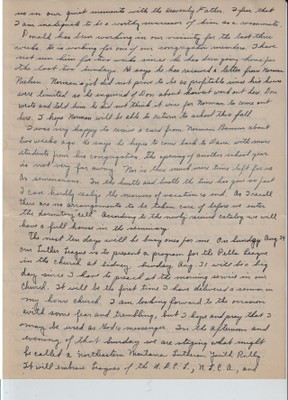 us in our quiet moments with the Heavenly Father. I fear that
I am inadequate to be a worthy successor of him as a roommate.
Donald has been working in our vicinity for the last three
weeks. He is working for one of our congregation members. I have
not seen him for two weeks since he has been going home for
the last two Sundays. He says he has received a letter from Norman
Norman's job did not prove to be so profitable since his hours
were limited so he inquired of Don about harvest work out here. Don
wrote and told him he did not think it wise for Norman to come out
here. I hope Norman will be able to return to school this fall.
I was very happy to receive a card from Norman about
two weeks ago. He says he hopes to come back to Dana with more
students from his congregation. The opening of another school year
is not very far away. Nor is there much more time left for us
as seminarians. In the hustle and bustle the time has gone so fast
I can hardly realize the nearness of vacation's end. As I recall
there are no arrangements to be taken care of before we enter
the dormitory cell. According to the newly received catalog we will
have a full house in the seminary.
The next ten days will be busy ones for me. On Sunday Aug 24
our Luther League is to present a program for the Pella League
in the church at Sidney. Sunday Aug. 31 will be a big
day since I have to preach at the morning service in our
Church. It will be the first time I have delivered a sermon in
my home church. I am looking forward to the occasion
with some fear and trembling, but I hope and pray that I
may be used as God's messenger. In the afternoon and
evening of that Sunday we are staging what might
be called a Northeastern Montana Lutheran Youth Rally.
It will embrace Leagues of the U.D.E.L., N.L.C.A., and